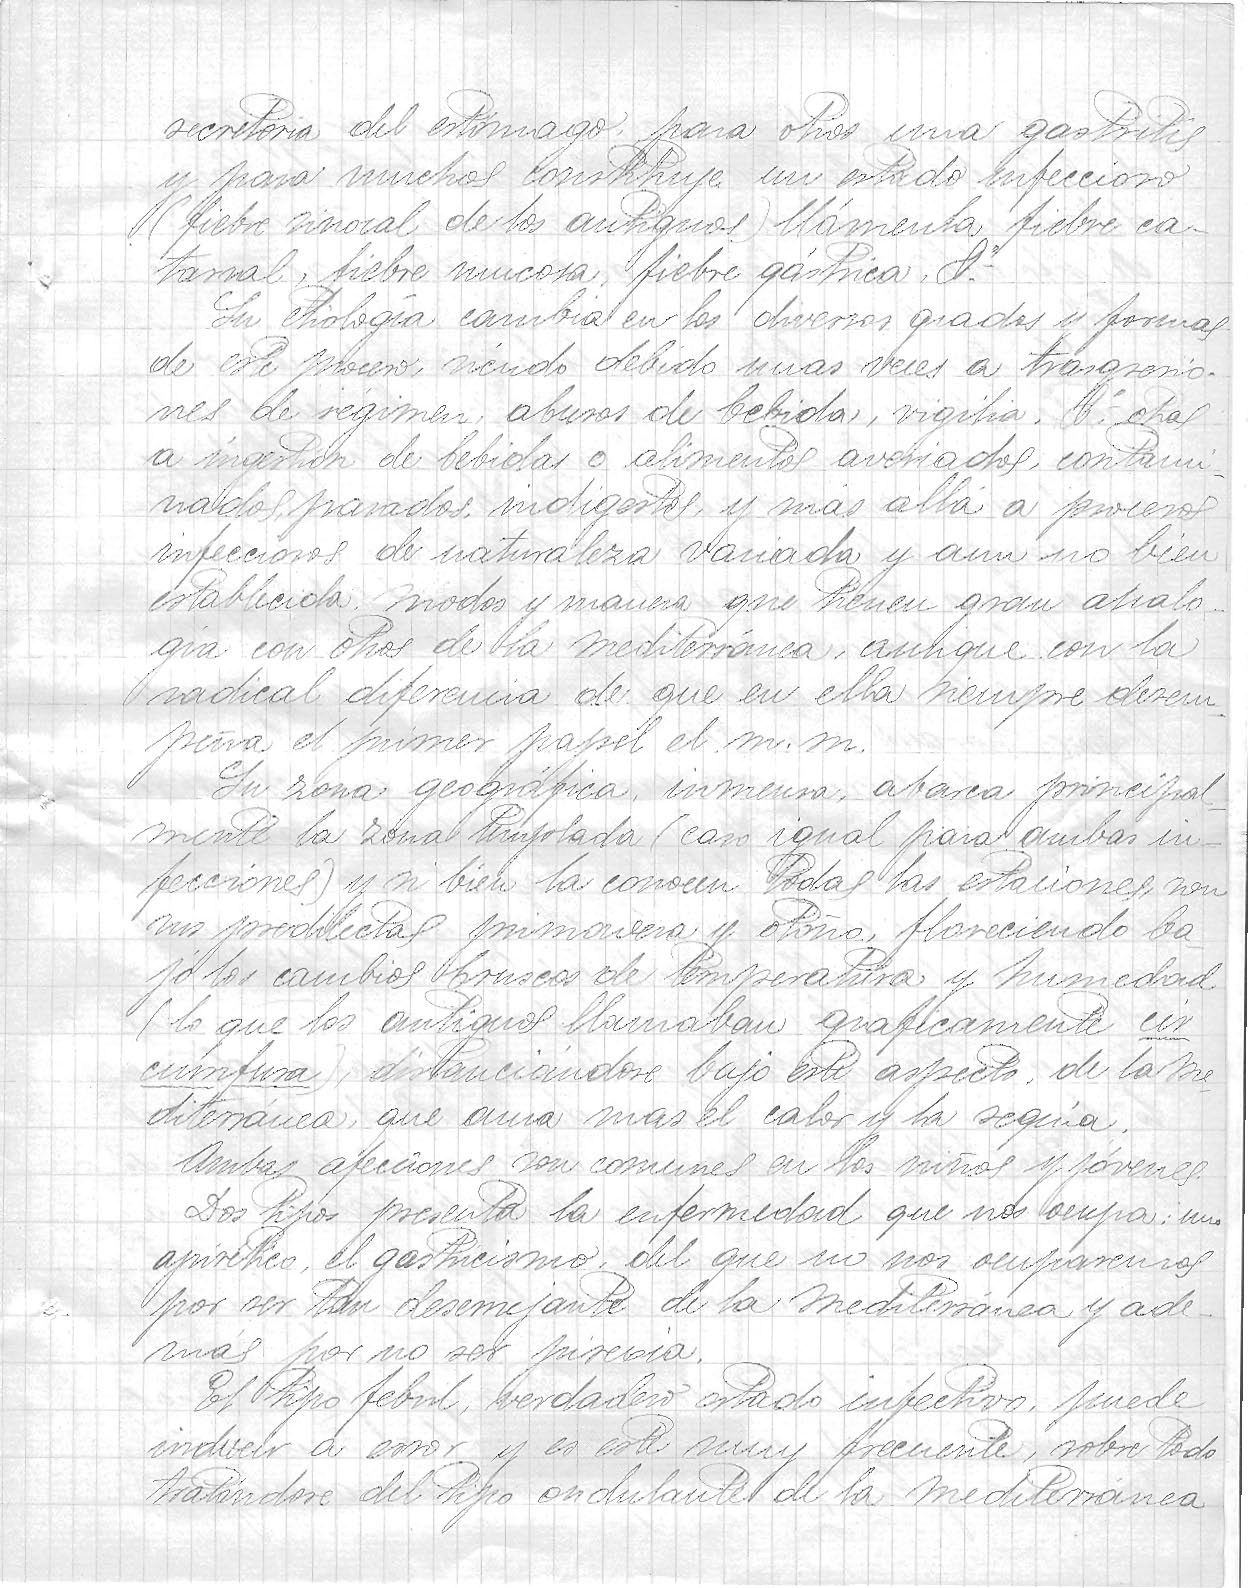 secretoria del estómago, para otros una gastritis
y para muchos constituye un estado infeccioso
(fiebre sinocal de los antiguos) llámenla fiebre ca-
tarral, fiebre mucosa, fiebre gástrica, &ª-
Su etiología cambia en los diversos grados y formas
de este proceso, siendo debido unas veces a trasgresio-
nes de régimen, abusos de bebida, vigilia, &ª- otras
a ingestión de bebidas o alimentos averiados, contami-
nados, pasados, indigestos, y más allá a procesos
infecciosos de naturaleza variada y aun no bien
establecida, modos y manera que tienen gran analo-
gía con otros de la mediterránea, aunque con la
radical diferencia de que en ella siempre desem-
peña el primer papel el m.m.
Su zona geográfica, inmensa, abarca principal-
mente la zona templada (caso igual para ambas in-
fecciones) y si bien la conocen todas las estaciones, son
sus predilectas primavera y otoño, floreciendo ba-
jo los cambios bruscos de temperatura y humedad
(lo que los antiguos llamaban graficamente cir
cumfusa), distanciándose bajo este aspecto, de la me-
diterránea, que ama mas el calor y la sequía.
Ambas afecciones son comunes en los niños y jóvenes.
Dos tipos presenta la enfermedad que nos ocupa: uno
apirético, el gastricismo, del que no nos ocuparemos
por ser tan desemejante de la mediterránea y ade-
más por no ser pirexia.
El tipo febril, verdadero estado infectivo, puede
inducir a error y es este muy frecuente, sobre todo
tratándose del tipo ondulante de la mediterránea